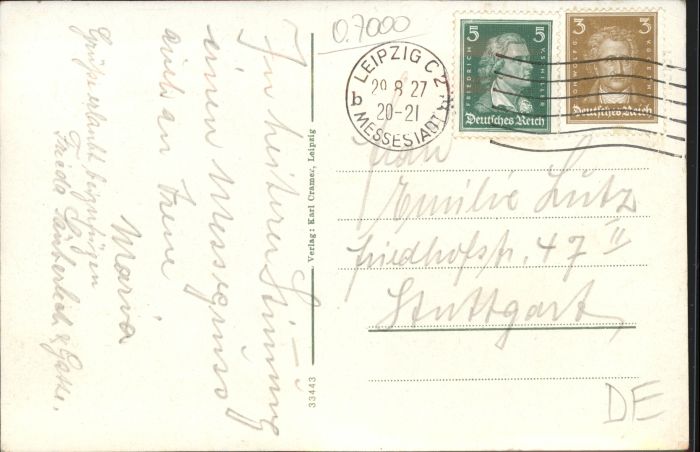 0.7000
In heiterer Stimmung
einen Messegruss
auch an Irene
Maria
Grüße erlaubt beizufügen
Frieda Sauberlich & Gatte.
Verlag: Karl Cramer, Leipzig
33443
LEIPZIG C 2
b
29.8.27
20-21
MESSESTADT
5 5
FRIEDRICH V. SCHILLER
Deutsches Reich
3 3
J. W. V. GOETHE
Deutsches Reich
Frau
Emilie Lutz
Friedhofstr. 47 II
Stuttgart
DE